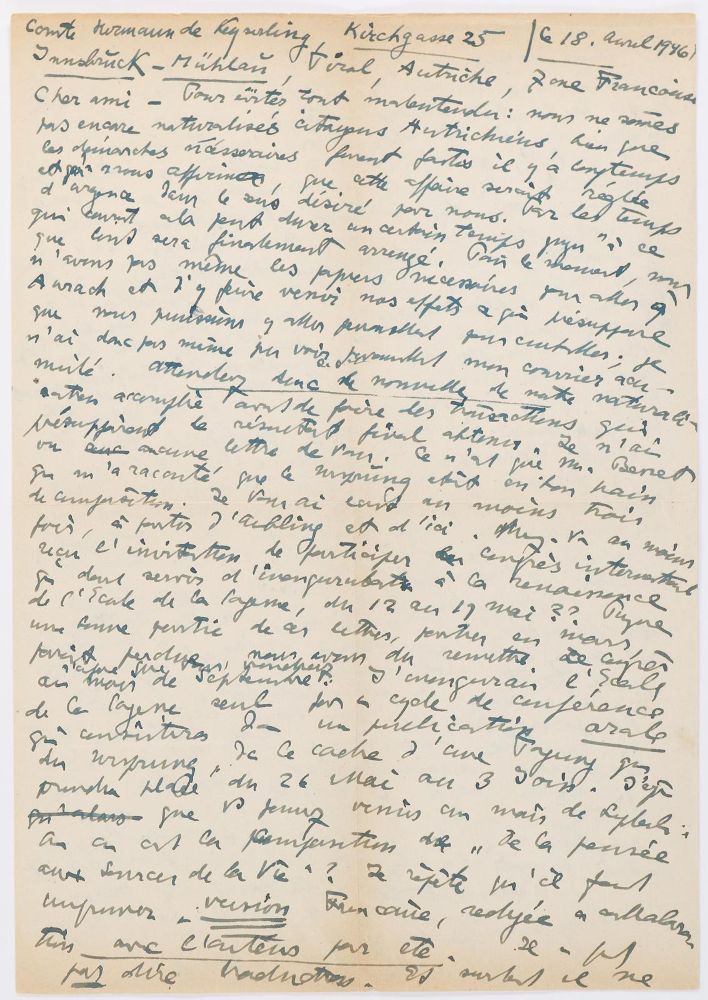 Comte Hermann de Keyserling Kirchgasse 25 le 18. Avril 1946
Innsbruck - Mühlau, Tirol, Autriche, Zone Française
Cher ami - Pour éviter tout malentendu: nous ne sommes
pas encore naturalisés citoyens Autrichiens, bien que
les démarches nécessaires furent faites il y a longtemps
et qu'on nous affirme, que cette affaire serait réglée
d'urgence dans le sens désiré par nous. Par les temps
qui courent cela peut durer un certain temps jusqu'à ce
que tout sera finalement arrangé. Pour le moment, nous
n'avons pas même les papiers nécessaires pour aller à
Aurach et d'y faire venir nos effets ce qui présuppose
que nous puissions y aller pour ; je
n'ai donc pas même pu voir mon courrier accu-
mulé. Attendez donc la nouvelle de notre naturali-
sation accomplie avant de faire des transactions qui
présupposent le résultat final obtenu. Je n'ai
vu aucune lettre de Vous. Ce n'est que Mr. Benet
qui m'a raconté que le Ursprung était en bon train
de composition. Je Vous ai écrit au moins trois
fois, à partir d'Aibling et d'ici. Avez-Vs au moins
reçu l'invitation de participer au congrès international
qui doit servir d'inauguration à la renaissance
de l'Ecole de la Sagesse, du 12 au 19 mai?? Puisque
une bonne partie de ces lettres, parties en mars,
parait perdue, nous avons du remettre le congrès
au mois de Septembre. J'inaugurerai l'Ecole
de la Sagesse seul par un cycle de conférence
qui consistera dans un publication orale
du Ursprung, ds le cadre d'une Tagung qui
prendra place du 26 Mai au 3 Juin. J'espère
que Vs pourrez venir au mois de Septembre.
Où en est la composition de „De la pensée
aux Sources de la Vie"? Je répète qu'il faut
imprimer „version Française, rédigée en collabora-
tion avec l'auteur par etc. Je
pas dire traduction. Et surtout il ne